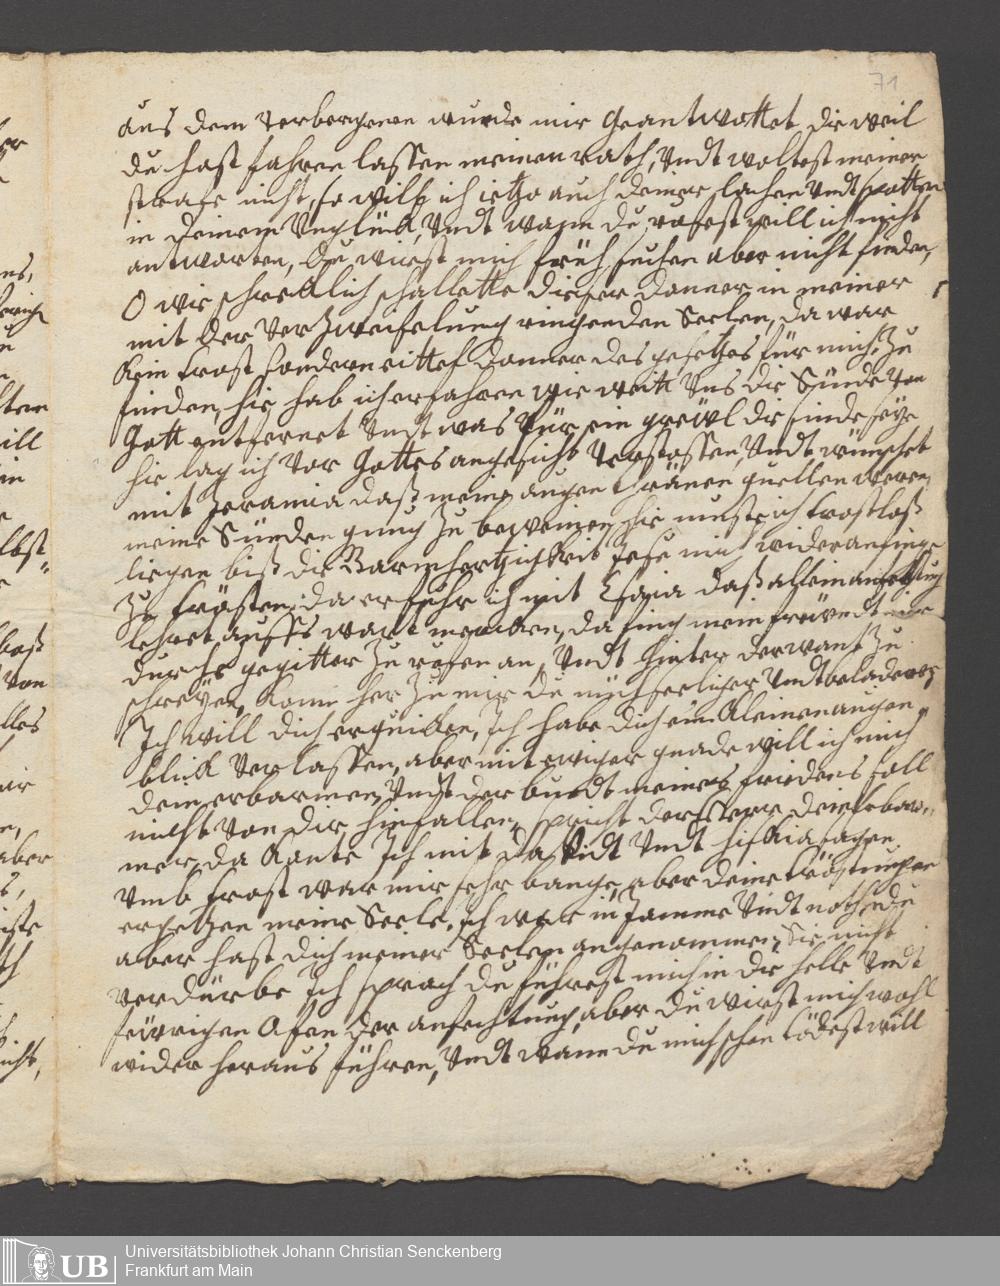 71
aus dem verborgenen wurde mir geantwottet die weil
du hast fahren lassen meinen rath, Undt woltest meiner
straafe nicht, so will ich ietzo auch deiner lachen Undt spotten
in deinem Unglück, Undt wann du rufest will ich nicht
antworten, du wirst mich früh suchen aber nicht finden,
O wie schrecklich schallette dieser donner in meiner
mit der Verzweifelung ringenden Seelen, da war
Kein trost sondern eittel donner des gesetzes für mich, zu
finden, hie hab ich erfahren wie weitt Uns die Sünde von
Gott entfernet Undt was für ein greüwl die sünde seÿe
hie lag ich vor Gottes angesicht verstossen, Undt wünschet
mit Jeramia daß meine augen thränen quellen weren,
meine Sünden gnug zu beweinen, hie must ich trostloß
liegen biß die Barmhertzigkeit Jesu mich wider anfinge
zu trösten, da erfuhr ich mit Esaia daß allein anfechtung
lehret auffs wort mercken, da fing mein freündt
durchs gegitter zu rufen an, Undt hinter der want zu
schreÿen, Kom her zu mir du mühseeliger Undt beladener
Ich will dich erquicken, Ich habe dich ein Kleinen augen
blick verlassen, aber mit ewiger gnade will ich mich
dein erbarmen, Undt der bundt meines friedens soll
nicht von dir hinfallen, spricht der Herr dein erbar„
mer, da Konte Ich mit David Undt Hiskia sagen
Umb trost war mir sehr bange, aber deine tröstungen
ergetzen meine Seele, ich war in Jammer Undt noth, du
aber hast dich meiner Seelen angenommen, Sie nicht
verdürbe Ich sprach du führest mich in die helle Undt
feürigen Ofen der anfechtung, aber du wirst mich wohl
wider heraus führen, Undt wann du mich schon tödest will
Universitätsbibliothek Johann Christian Senckenberg
Frankfurt am Main
UB